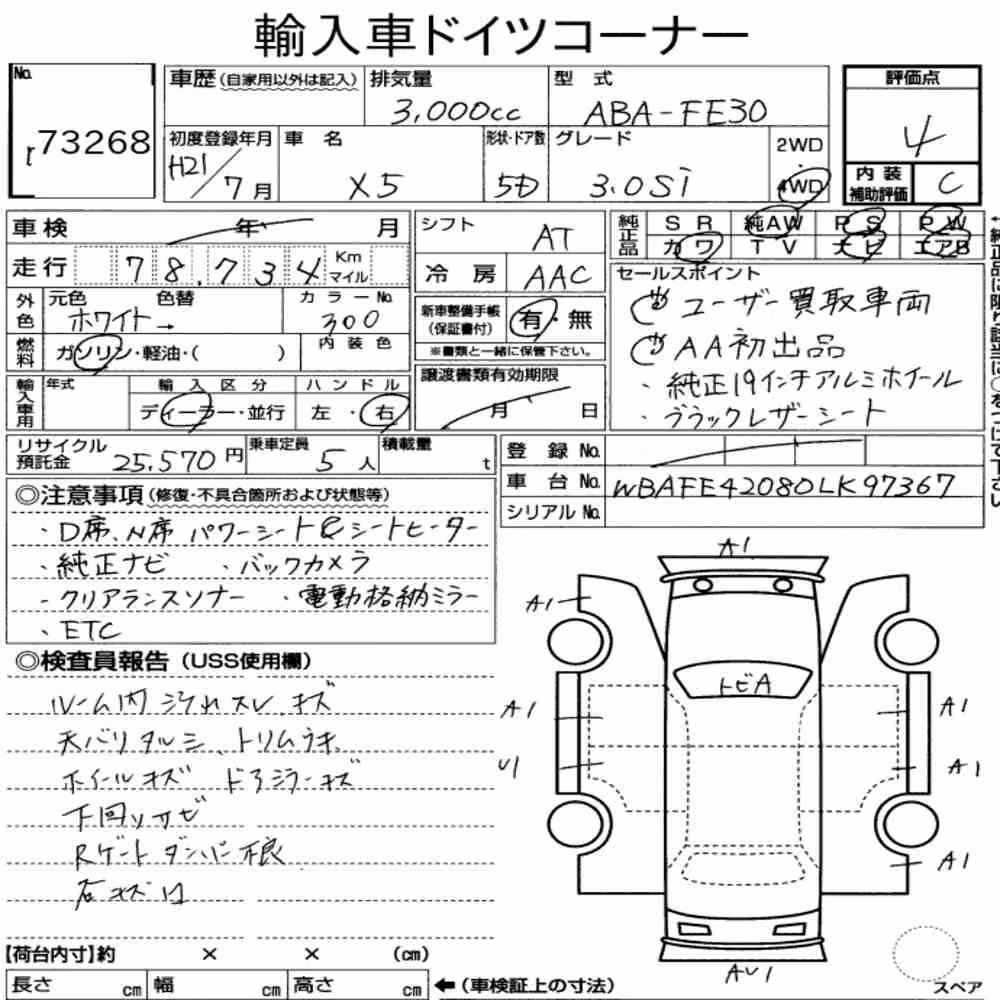 輸入車ドイツコーナー
No. 73268
車歴(自家用以外は記入) 排気量 3,000cc 型式 ABA-FE30 評価点 4
初度登録年月 H21/7月 車名 X5 形状・ドア数 5D グレード 3.0Si 2WD・4WD 内装補助評価 C
車検 年 月
シフト AT
純正品 SR 純AW PS PW
カワ TV ナビ エアB
走行 78,734 Km マイル
冷房 AAC
セールスポイント
ユーザー買取車両
AA初出品
・純正19インチアルミホイール
・ブラックレザーシート
外色 元色 ホワイト→ 色替 カラーNo. 300
燃料 ガソリン・軽油・( ) 内装色
新車整備手帳(保証書付) 有・無
※書類と一緒に保管下さい。
譲渡書類有効期限 月 日
輸入車用 年式 輸入区分 ディーラー・並行 ハンドル 左・右
リサイクル預託金 25,570円 乗車定員 5人 積載量 t
登録No.
車台No. WBAFE42080LK97367
シリアルNo.
◎注意事項(修復・不具合箇所および状態等)
・D席、N席 パワーシート&シートヒーター
・純正ナビ ・バックカメラ
・クリアランスソナー ・電動格納ミラー
・ETC
◎検査員報告(USS使用欄)
ルーム内 汚れ スレ、キズ
天バリタルミ、トリムウキ
ホイールキズ ドアミラーキズ
下回りサビ
Rゲートダンパー不良
A1
A1
トビA
A1 A1
U1 A1
A1
AU1
【荷台内寸】約 × × (cm)
長さ cm 幅 cm 高さ cm ←(車検証上の寸法)
スペア